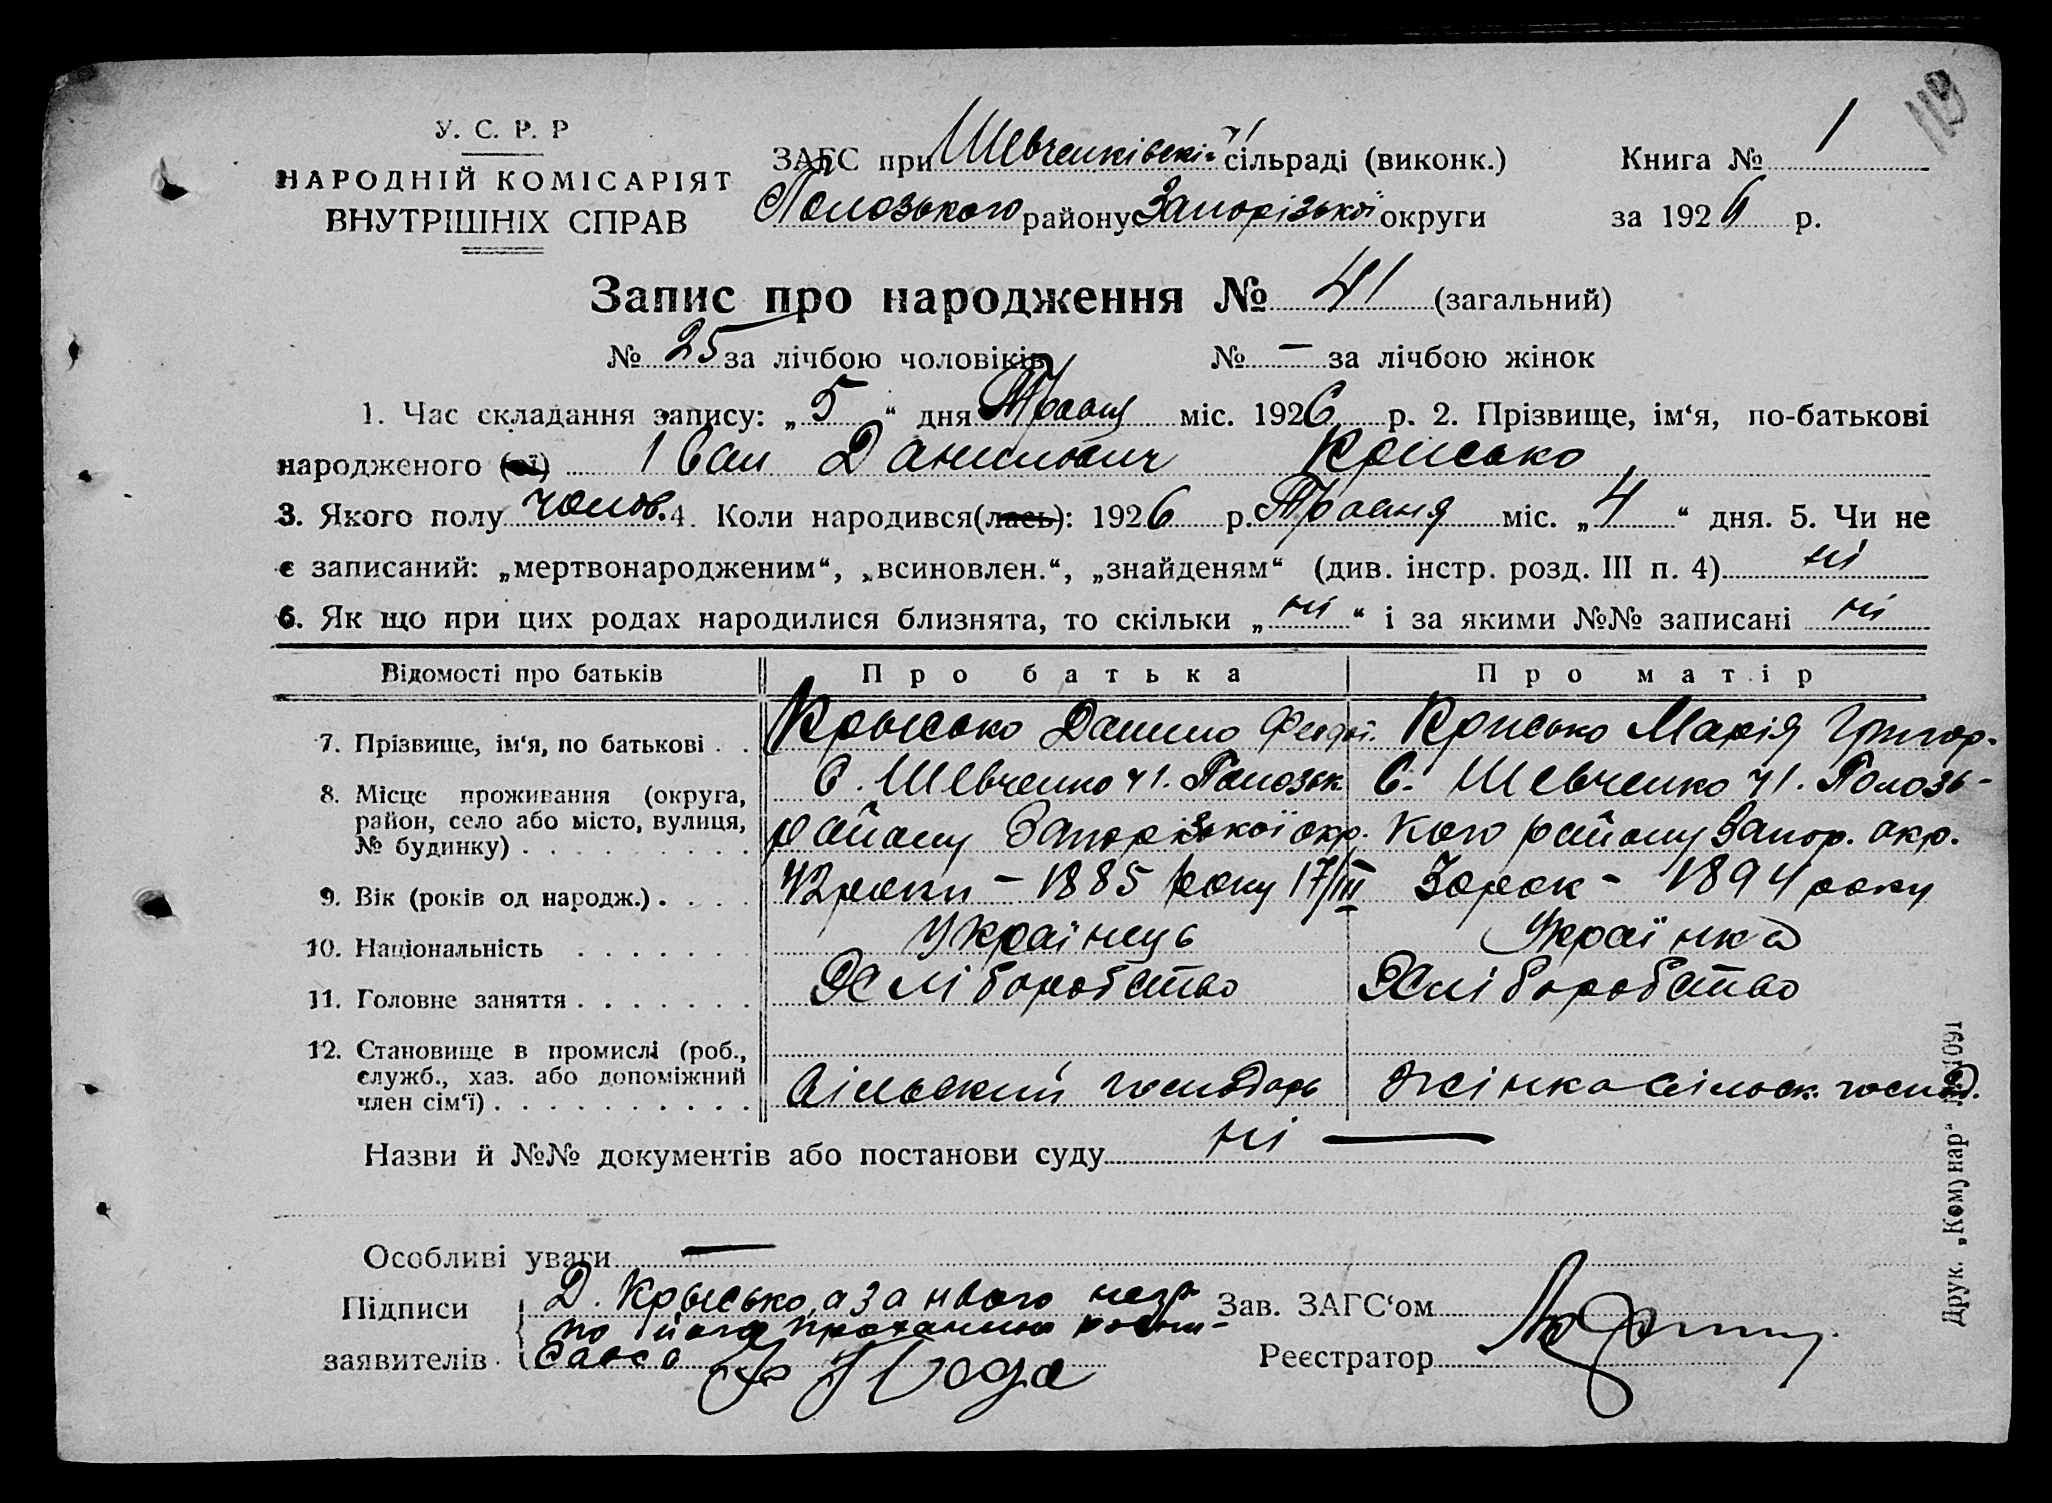 У. С. Р. Р
НАРОДНІЙ КОМІСАРІЯТ
ВНУТРІШНІХ СПРАВ
ЗАГС при Шевченківскій ч1 сільраді (виконк.)
Пологзького району Запорізької округи
Книга № 1
за 1926 р.
Запис про народження № 41 (загальний)
№ 25 за лічбою чоловіків № — за лічбою жінок
1. Час складання запису: „5“ дня Травня міс. 1926 р. 2. Прізвище, ім‘я, по-батькові
народженого (ої) Іван Данилович Крисько
3. Якого полу чолов. 4. Коли народився(лась): 1926 р. Травня міс. „4“ дня. 5. Чи не
є записаний: „мертвонародженим“, „всиновлен.“, „знайденям“ (див. інстр. розд. III п. 4) ні
6. Як що при цих родах народилися близнята, то скільки „ні“ і за якими №№ записані ні
Відомості про батьків Про батька Про матір
7. Прізвище, ім‘я, по батькові Крысько Данило Крисько Марія Григор.
8. Місце проживання (округа, район, село або місто, вулиця, № будинку) С. Шевченко ч1. Полозьк. району Запорізької окр. С. Шевченко ч1. Полозького району Запор. окр.
9. Вік (років од народж.) 42 роки – 1885 року 17/III 1894 року
10. Національність Українець Українка
11. Головне заняття Хліборобство Хліборобство
12. Становище в промислі (роб., служб., хаз. або допоміжний член сім‘ї) Сільский господарь Жінка сільск. господ.
Назви й №№ документів або постанови суду ні —
Особливі уваги —
Підписи заявителів Д. Крысько, а за нього негр.
по його проханню
Зав. ЗАГС‘ом
Реєстратор
Друк. „Комунар“